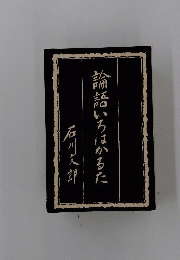 論語いろはかるた
石川文郎